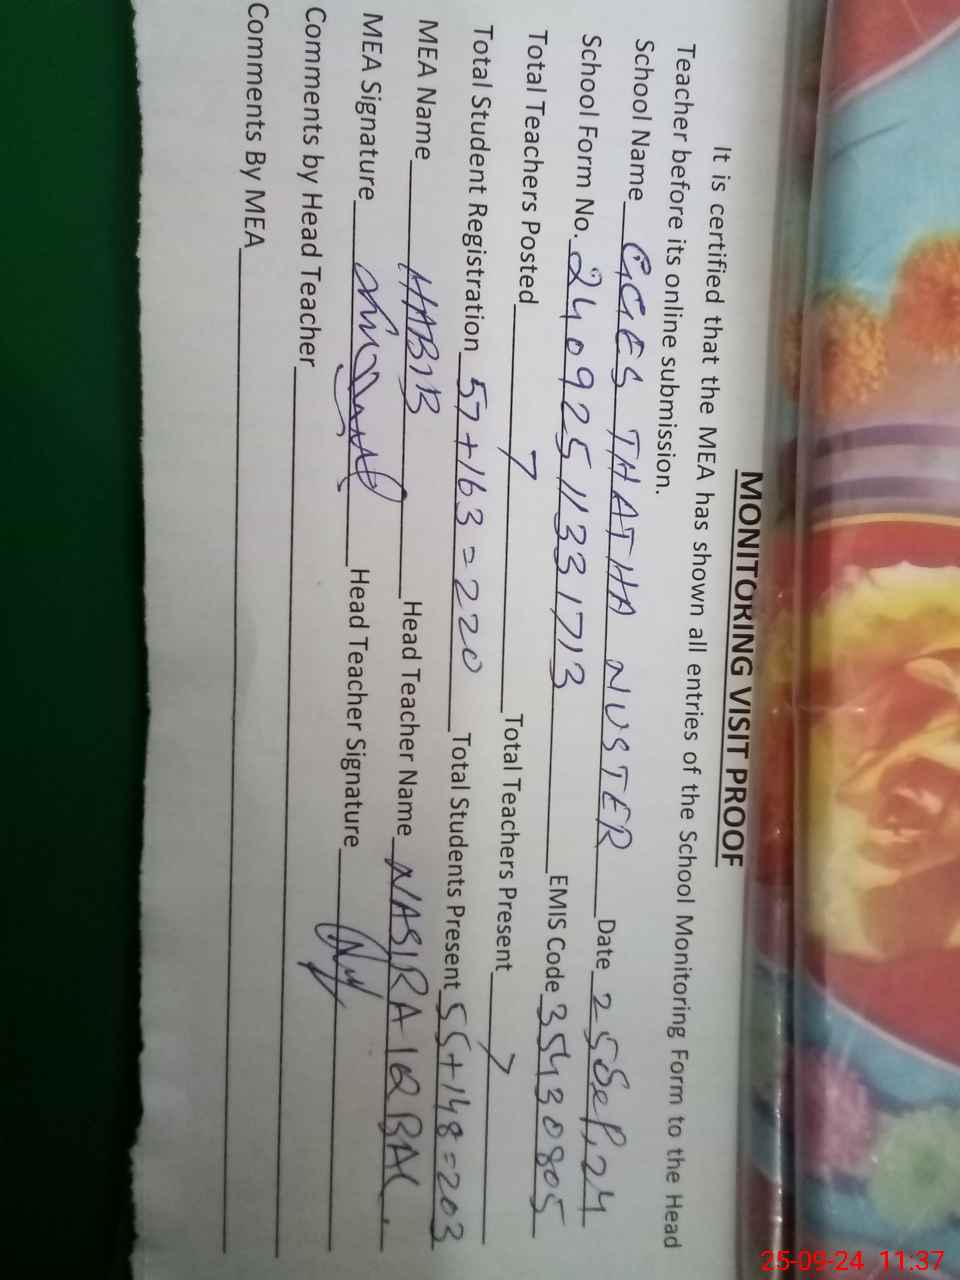 MONITORING VISIT PROOF
It is certified that the MEA has shown all entries of the School Monitoring Form to the Head
Teacher before its online submission.
School Name GGES THATHA NUSTER Date 25 Sep, 24
School Form No. 24092511331713 EMIS Code 35430805
Total Teachers Posted 7 Total Teachers Present 7
Total Student Registration 57+163=220 Total Students Present 55+148=203
MEA Name HABIB Head Teacher Name NASIRA IQBAL
MEA Signature Head Teacher Signature
Comments by Head Teacher
Comments By MEA
25-09-24 11:37